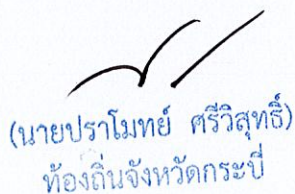 (นายปราโมทย์ ศรีวิสุทธิ์)
ท้องถิ่นจังหวัดกระบี่